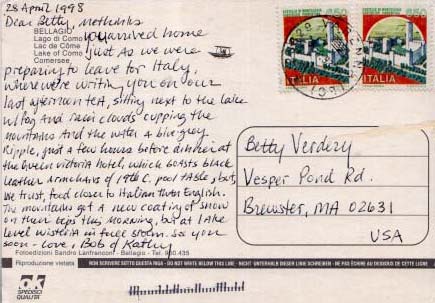 28 April 1998
Dear Betty, methinks
you arrived home
just as we were
preparing to leave for Italy,
where we're writing you on our
last afternoon tea, sitting next to the lake
w/ fog and rain clouds cupping the
mountains and the water a blue-grey
ripple, just a few hours before dinner at
the Queen Victoria Hotel, which boasts black
leather armchairs of 19th C. pool table, but,
we trust, food closer to Italian than English.
The mountains got a new coating of snow
on their tops this morning, but at lake
level wisteria in full bloom. See you
soon - love, Bob & Kathy
BELLAGIO
Lago di Como
Lac de Côme
Lake of Como
Comersee
650
ITALIA
650
ITALIA
Betty Verdery
Vesper Pond Rd.
Brewster, MA 02631
USA
Fotoedizioni Sandro Lanfranconi - Bellagio - Tel. 950.435
Riproduzione vietata
NON SCRIVERE SOTTO QUESTA RIGA - DO NOT WRITE BELOW THIS LINE - NICHT UNTERHALB DIESER LINIE SCHREIBEN - NE PAS ÉCRIRE AU DESSOUS DE CETTE LIGNE